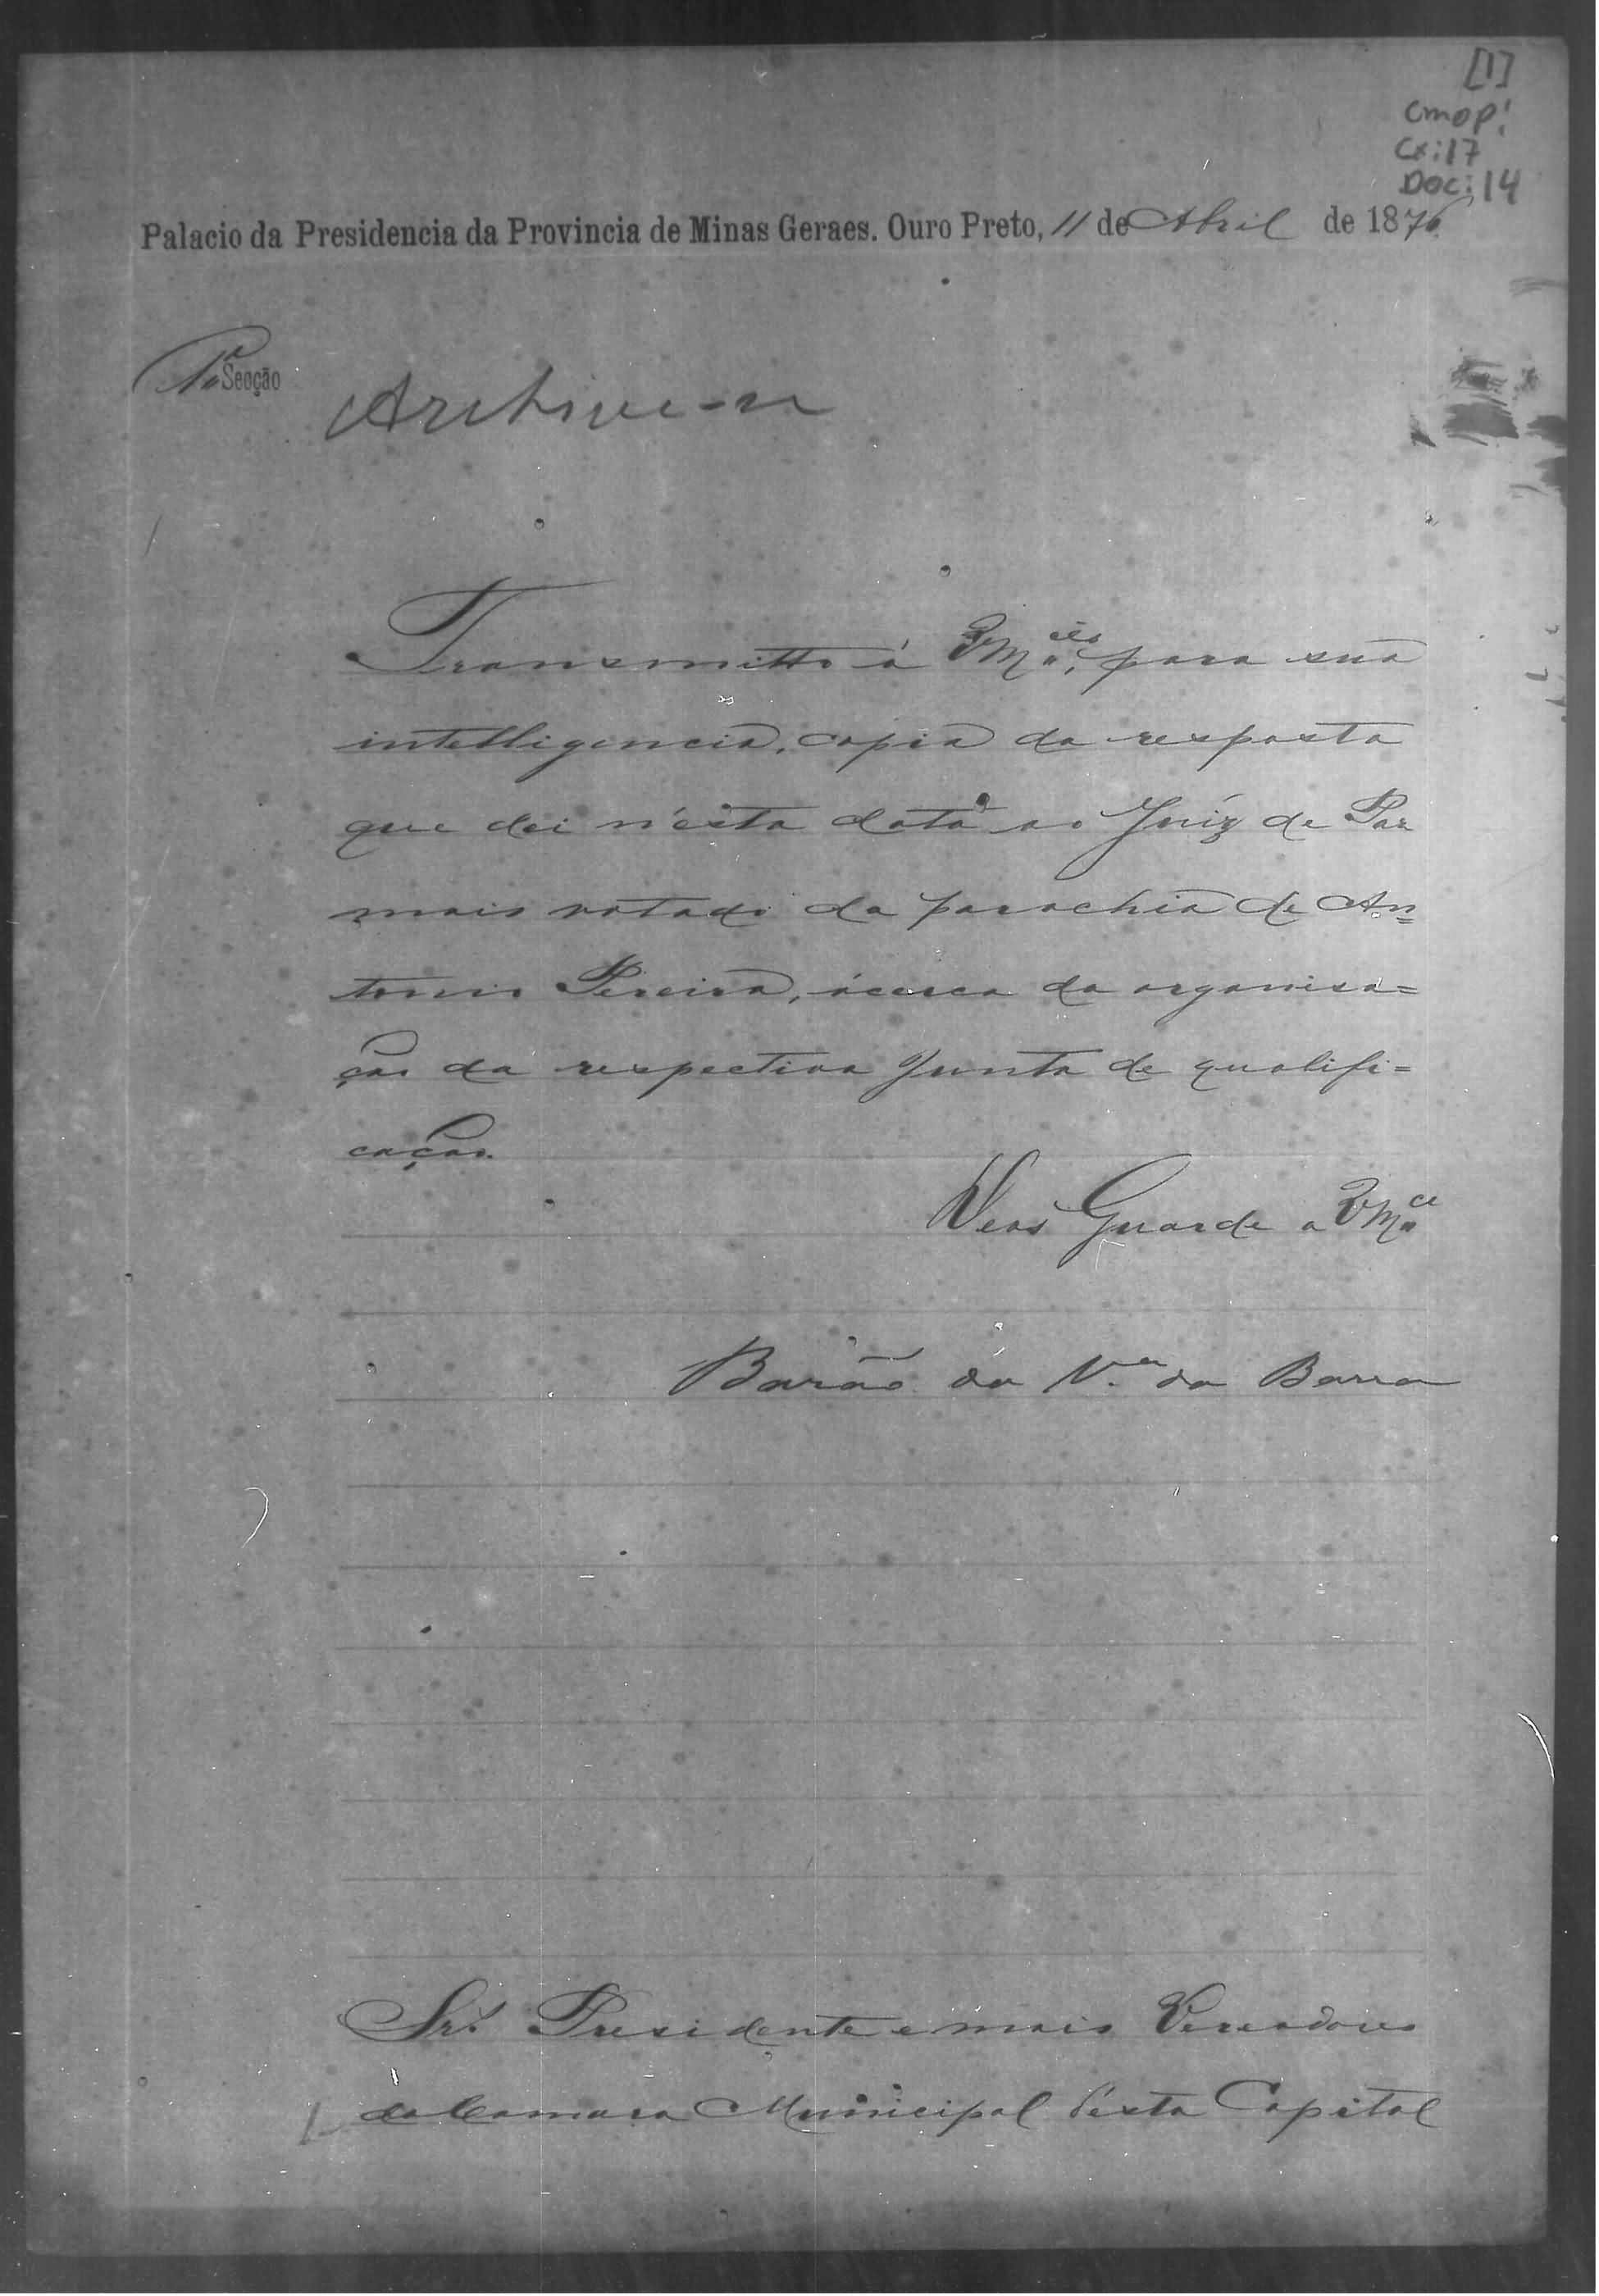 [1]
CMOP:
Cx: 17
DOC: 14
Palacio da Presidencia da Provincia de Minas Geraes. Ouro Preto, 11 de Abril de 1876
1ª Secção
Archive-se
Transmitto á VMcês, para sua
intelligencia, copia da resposta
que dei n'ésta data ao Juiz de Paz
mais votado da parochia de An=
tonio Pereira, ácerca da organisa=
ção da respectiva Junta de qualifi=
cação.
Deos Guarde a VMce
Barão da Va da Barra
Srs. Presidente e mais Vereadores
da Camara Municipal d'ésta Capital